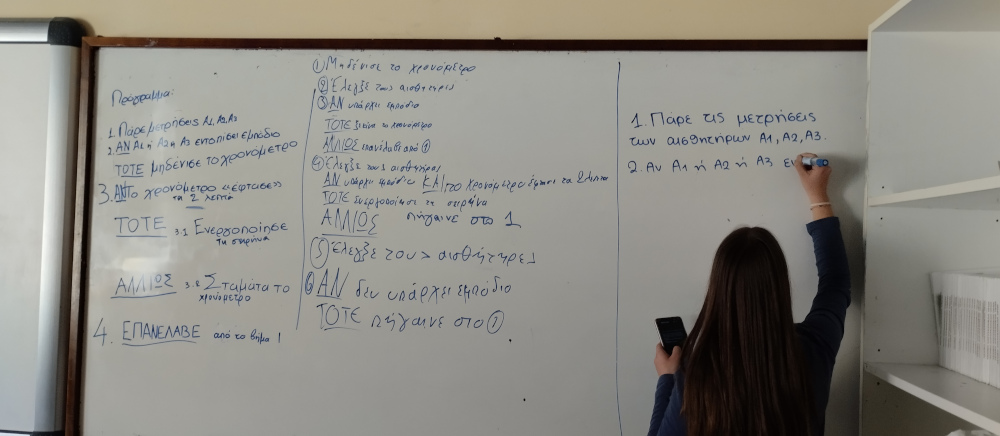 Πρόγραμμα:
1. Πάρε μετρήσεις Α1, Α2, Α3
2. ΑΝ Α1 ή Α2 ή Α3 εντοπίσει εμπόδιο
ΤΟΤΕ μηδένισε το χρονόμετρο
3. ΑΝ το χρονόμετρο «έφτασε»
τα 2 λεπτά
ΤΟΤΕ 3.1 Ενεργοποίησε
τη σειρήνα
ΑΛΛΙΩΣ 3.2 Σταμάτα το
χρονόμετρο
4. ΕΠΑΝΕΛΑΒΕ από το βήμα 1
① Μηδένισε το χρονόμετρο
② Έλεγξε τους αισθητήρες
③ ΑΝ υπάρχει εμπόδιο
ΤΟΤΕ ξεκίνα το χρονόμετρο
ΑΛΛΙΩΣ επανέλαβε από ①
④ Έλεγξε τους αισθητήρες
ΑΝ υπάρχει εμπόδιο ΚΑΙ το χρονόμετρο έφτασε τα 2 λεπτά
ΤΟΤΕ ενεργοποίησε τη σειρήνα
ΑΛΛΙΩΣ πήγαινε στο 1
⑤ Έλεγξε τους αισθητήρες
⑥ ΑΝ δεν υπάρχει εμπόδιο
ΤΟΤΕ πήγαινε στο ①
1. Πάρε τις μετρήσεις
των αισθητήρων Α1, Α2, Α3.
2. Αν Α1 ή Α2 ή Α3 εν